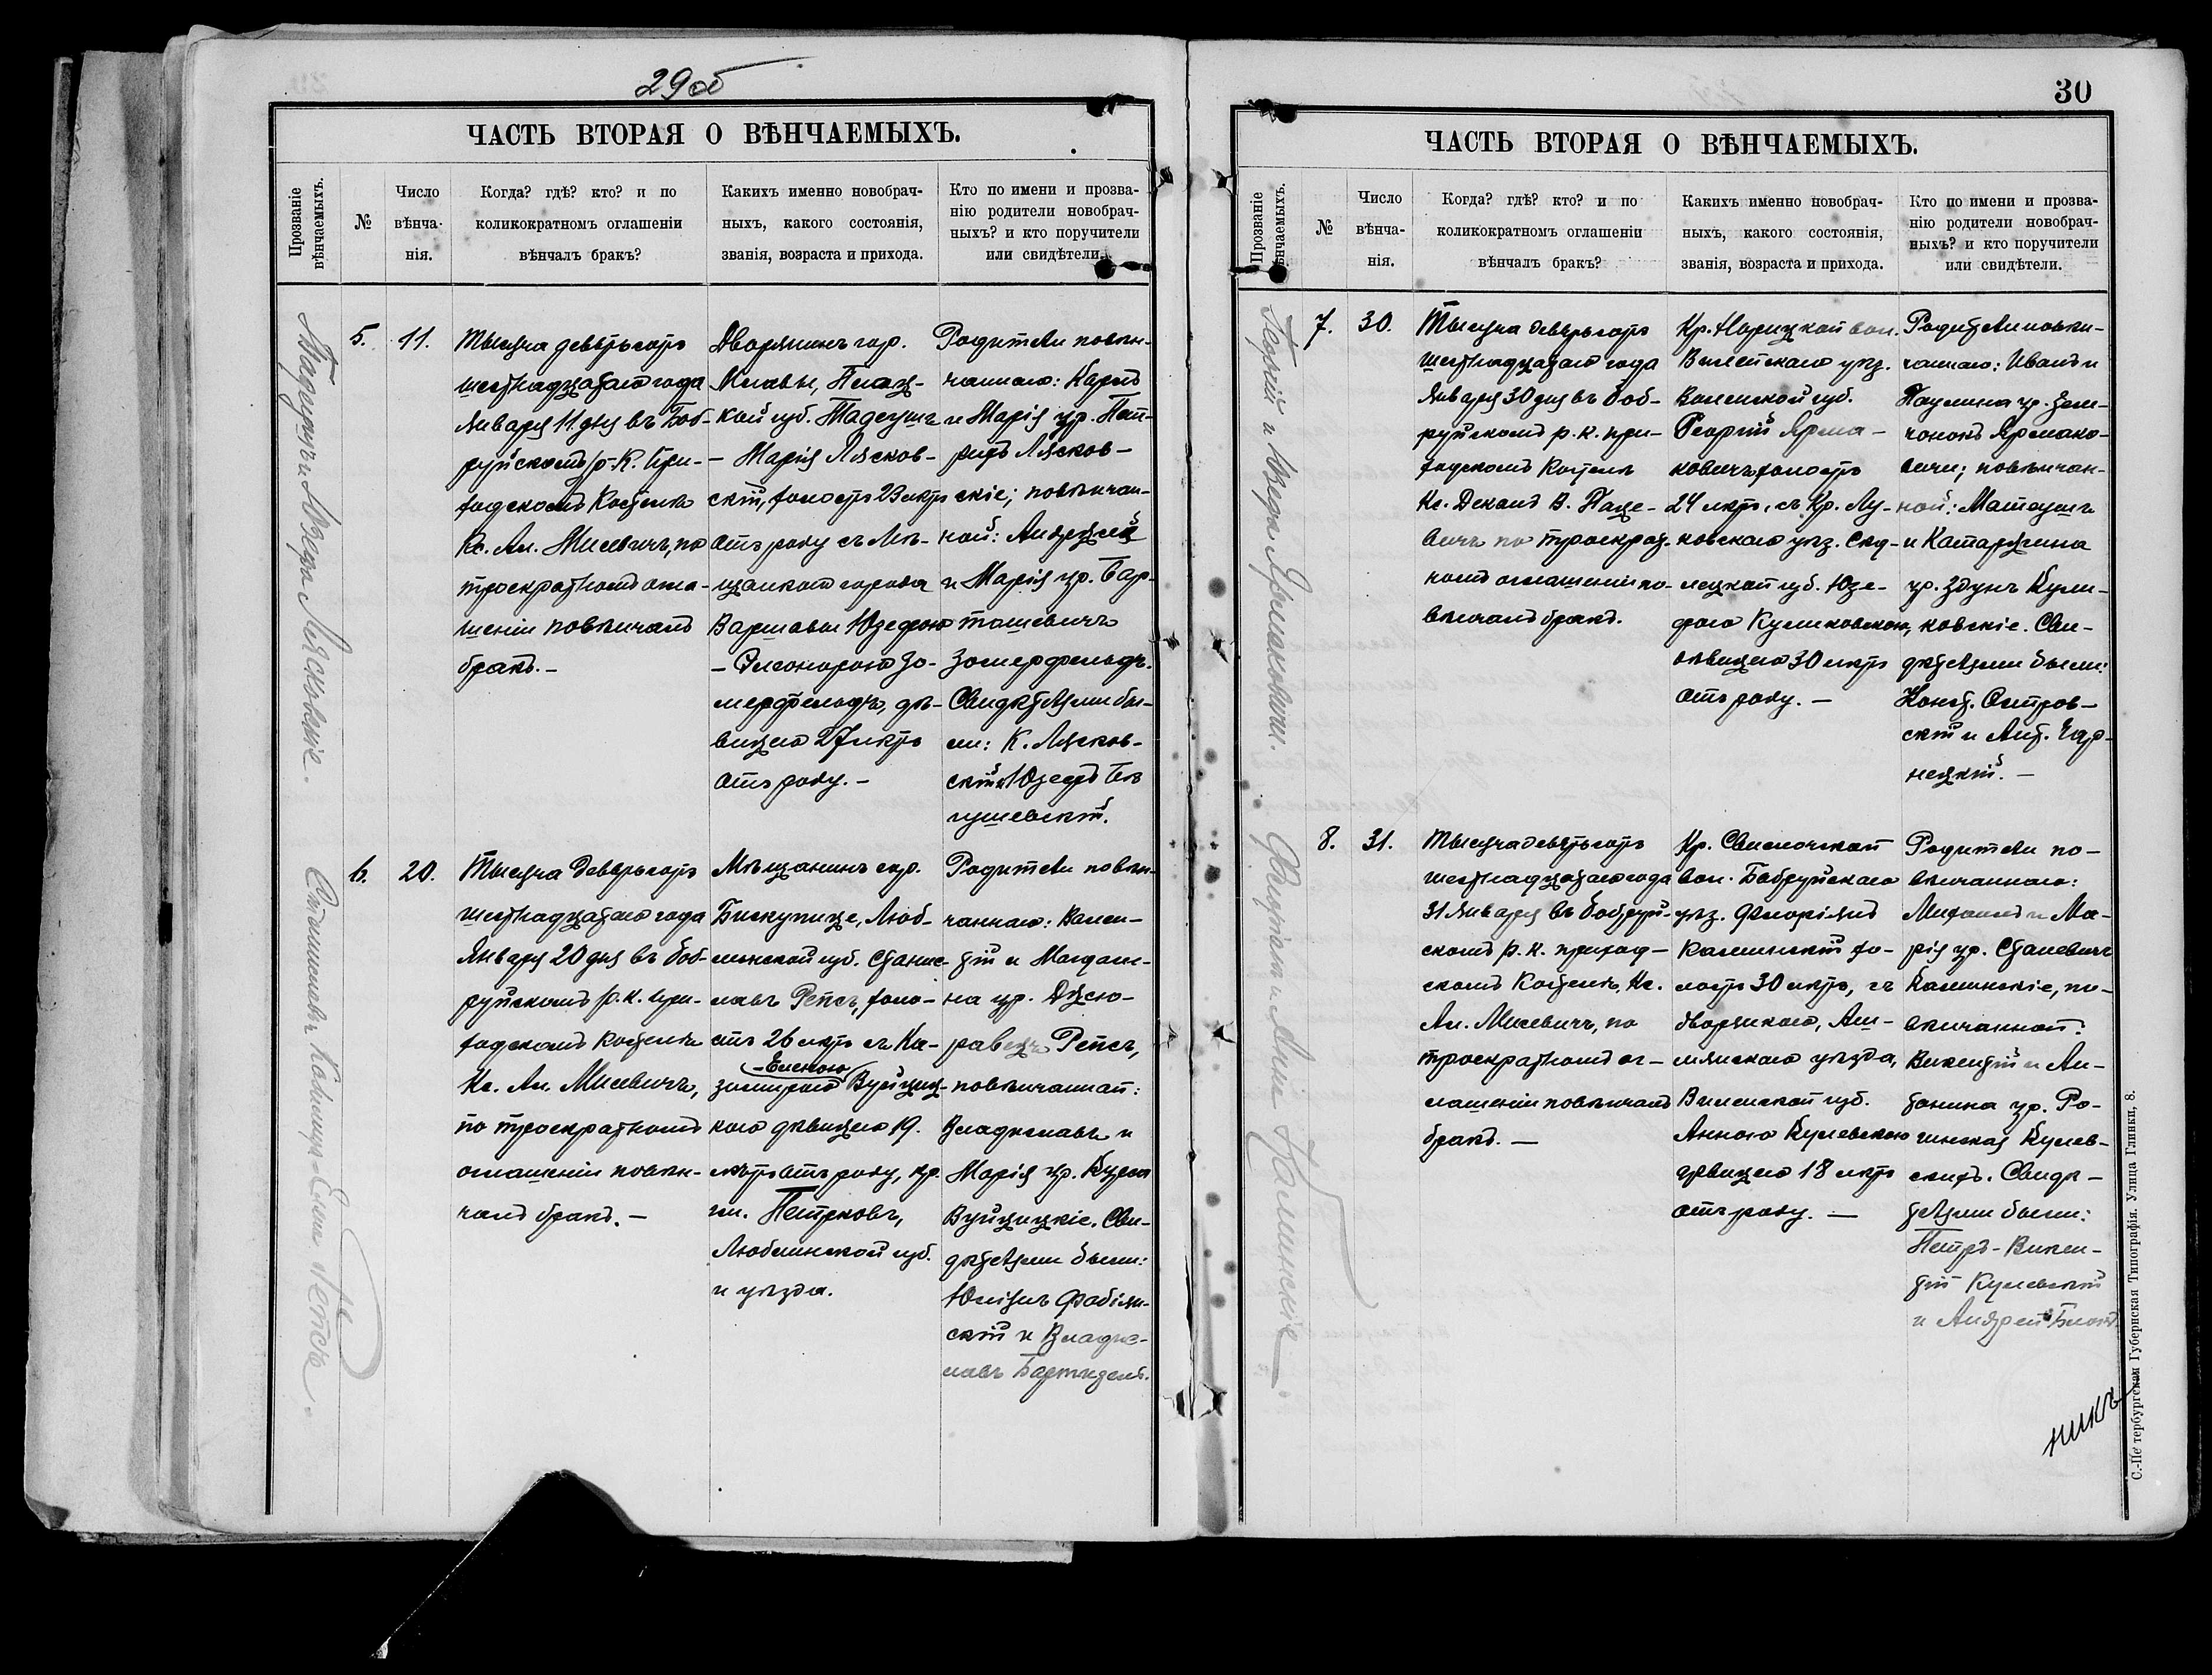 29об
ЧАСТЬ ВТОРАЯ О ВѢНЧАЕМЫХЪ.
Прозваніе вѣнчаемыхъ.
№
Число вѣнча-
нія.
Когда? гдѣ? кто? и по
коликократномъ оглашеніи
вѣнчалъ бракъ?
Какихъ именно новобрач-
ныхъ, какого состоянія,
званія, возраста и прихода.
Кто по имени и прозва-
нію родители новобрач-
ныхъ? и кто поручители
или свидѣтели.
Тадеушъ и Юзефа Лясковскіе.
5.
11.
Тысяча девятьсотъ
шестнадцатаго года
Января 11 дня въ Боб-
руйскомъ р.-К. при-
ходскомъ Костелѣ
Кс. Ал. Мисевичъ, по
троекратномъ огла-
шеніи повѣнчалъ
бракъ. —
Дворянинъ гор.
Млавы, Плоц-
кой губ. Тадеушъ
— Марія Лясков-
скій, холостъ 23 лѣтъ
отъ роду съ Мѣ-
щанкою города
Варшавы Юзефою
— Элеонорою Зо-
мерфельдъ, дѣ-
вицею 27 лѣтъ
отъ роду. —
Родители повѣн-
чаннаго: Карлъ
и Марія ур.
Лясков-
скіе; повѣнчан-
ной: Андржей
и Марія ур. Бар-
ташевичъ
Зомерфельдъ.
Свидѣтелями бы-
ли: К. Лясков-
скій и Юзефъ
6.
20.
Станиславъ и Казимира-Елена Репсъ.
Тысяча девятьсотъ
шестнадцатаго года
Января 20 дня въ Боб-
руйскомъ р.к. при-
ходскомъ Костелѣ
Кс. Ал. Мисевичъ,
по троекратномъ
оглашеніи повѣн-
чалъ бракъ. —
Мѣщанинъ гор.
Бискупице, Люб-
линской губ. Станис-
лавъ Репсъ, холо-
стъ 26 лѣтъ съ Ка-
зимирою -Еленою Вуйциц-
кою дѣвицею 19.
лѣтъ отъ роду, кр.
гм. Петрковъ,
Люблинской губ.
и уѣзда.
Родители повѣн-
чаннаго: Вален-
тій и Магдале-
на ур. Дзю-
Репсъ,
повѣнчанной:
Владиславъ и
Марія ур.
Вуйцицкіе. Сви-
дѣтелями были:
Юліанъ Фабіян-
скій и Владис-
лавъ
30
ЧАСТЬ ВТОРАЯ О ВѢНЧАЕМЫХЪ.
Прозваніе вѣнчаемыхъ.
№
Число
вѣнча-
нія.
Когда? гдѣ? кто? и по
коликократномъ оглашеніи
вѣнчалъ бракъ?
Какихъ именно новобрач-
ныхъ, какого состоянія,
званія, возраста и прихода.
Кто по имени и прозва-
нію родители новобрач-
ныхъ? и кто поручители
или свидѣтели.
Георгій и Юзефа Ярмаковичи.
7.
30.
Тысяча девятьсотъ
шестнадцатаго года
Января 30 дня въ Боб-
руйскомъ р. к. при-
ходскомъ Костелѣ
Кс. Деканъ В. Паце-
вичъ по троекрат-
номъ оглашеніи по-
вѣнчалъ бракъ.
Кр. Норицкой вол.
Вилейскаго уѣз.
Виленской губ.
Георгій Ярма-
ковичъ, холостъ
24 лѣтъ, съ Кр. Лу-
ковскаго уѣз. Сѣд-
лецкой губ. Юзе-
фою Куликовскою,
дѣвицею 30 лѣтъ
отъ роду. —
Родители повѣн-
чаннаго: Иванъ и
Паулина ур. Зеле-
нонокъ Ярмако-
вичи; повѣнчан-
ной: Матеушъ
и Катаржина
ур. Здунъ Кули-
ковскіе. Сви-
дѣтелями были:
Конст. Островс-
скій и Ант. Чар-
нецкій. —
8.
31.
Флоріанъ и Анна Калинскіе.
Тысяча девятьсотъ
шестнадцатаго года
31 Января въ Бобруй-
скомъ р. к. приход-
скомъ Костелѣ, Кс.
Ал. Мисевичъ, по
троекратномъ ог-
лашеніи повѣнчалъ
бракъ. —
Кр. Свислочской
вол. Бобруйскаго
уѣз. Флоріянъ
Калинскій хо-
лостъ 30 лѣтъ, съ
дворянкою, Ош-
мянскаго уѣзда,
Виленской губ.
Анною Кулевскою
дѣвицею 18 лѣтъ
отъ роду. —
Родители по-
вѣнчаннаго:
Михаилъ и Ма-
рія ур. Сталевичъ
Калинскіе, по-
вѣнчанной:
Викентій и Ан-
тонина ур. Ро-
гинская Кулев-
скихъ. Свидѣ-
телями были:
Петръ-Викен-
тій Кулевскій
и Андрей
никъ
С.-Петербургская Губернская Типографія. Улица Глинки, 8.